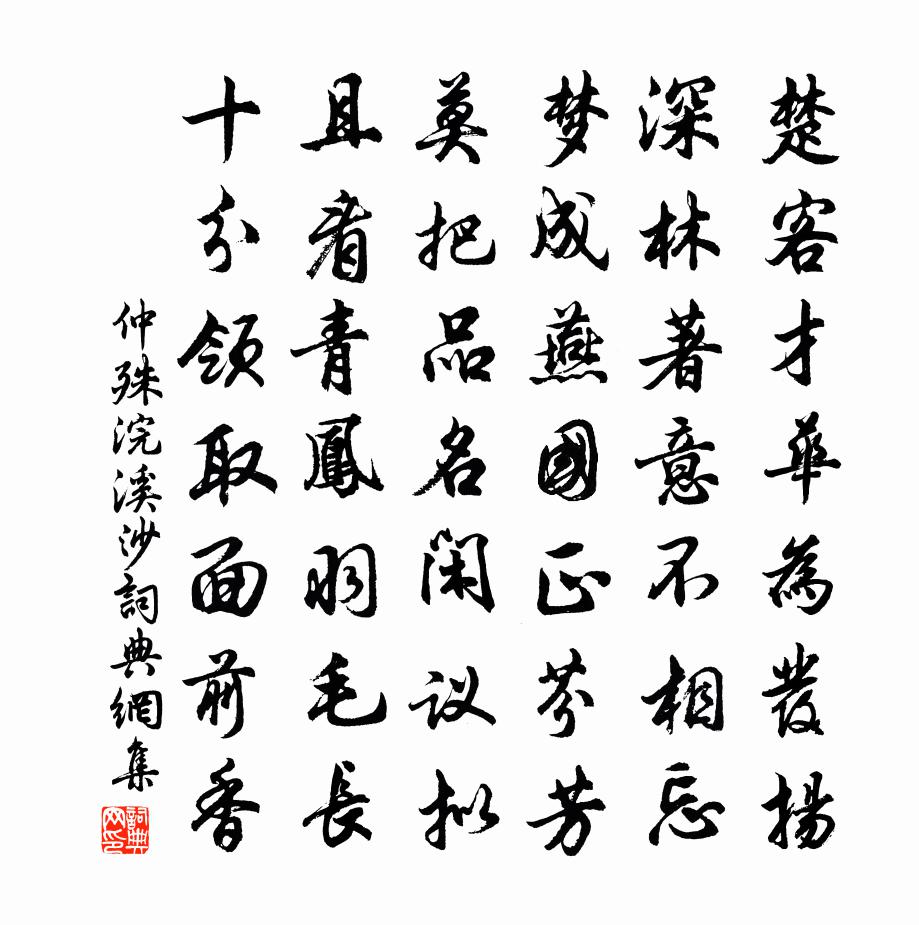 楚客才華為發揚
深林著意不相忘
梦成燕國正芬芳
莫把品名闲议拟
且看青鳳羽毛長
十分領取面前香
仲殊浣溪沙詞典網集
詞典网印